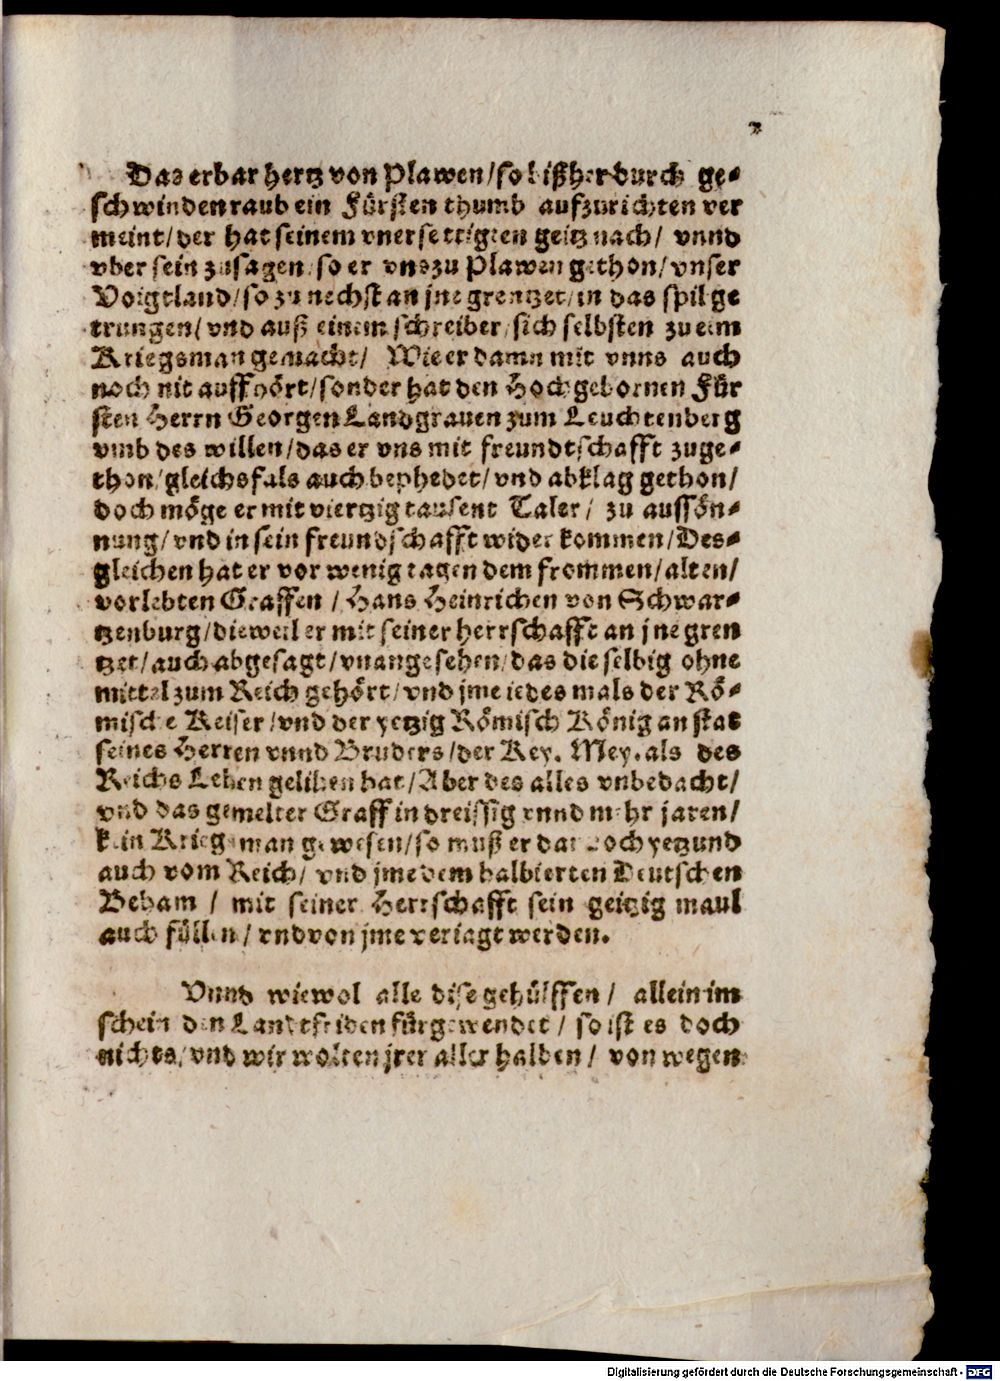 Das erbar hertz von Plawen/so bißher durch ge-
schwinden raub ein Fürsten thumb aufzurichten ver
meint/der hat seinem vnersettigten geitz nach/ vnnd
vber sein zusagen/so er vns zu Plawen gethon/vnser
Voigtland/so zu nechst an jne grentzet/in das spil ge
trungen/vnd auß einem schreiber/sich selbsten zu eim
Kriegsman gemacht/ Wie er dann mit vnns auch
noch nit auffhört/sonder hat den Hochgebornen Für
sten Herrn Georgen Landgrauen zum Leuchtenberg
vmb des willen/das er vns mit freundtschafft zuge-
thon/gleichsfals auch bephedet/vnd abklag gethon/
doch möge er mit viertzig tausent Taler/ zu aussön-
nung/vnd in sein freundschafft wider kommen/Des-
gleichen hat er vor wenig tagen dem frommen/alten/
vorlebten Graffen / Hans Heinrichen von Schwar-
tzenburg/dieweil er mit seiner herrschafft an jne gren
tzet/auch abgesagt/vnangesehen/das die selbig ohne
mittel zum Reich gehört/vnd jme iedes mals der Rö-
mische Keiser/vnd der yetzig Römisch König an stat
seines Herren vnnd Bruders/der Key. Mey. als des
Reichs Lehen gelihen hat/Aber des alles vnbedacht/
vnd das gemelter Graff in dreissig vnnd mehr jaren/
kein Kriegsman gewesen/so muß er dannoch yetzund
auch vom Reich/ vnd jme dem halbierten Deutschen
Beham / mit seiner Herrschafft sein geitzig maul
auch füllen/vnd von jme veriagt werden.
Vnnd wiewol alle dise gehülffen/ allein im
schein den Landtfriden fürgewendet/ so ist es doch
nichts/vnd wir wolten jrer aller halben/ von wegen
Digitalisierung gefördert durch die Deutsche Forschungsgemeinschaft - DFG